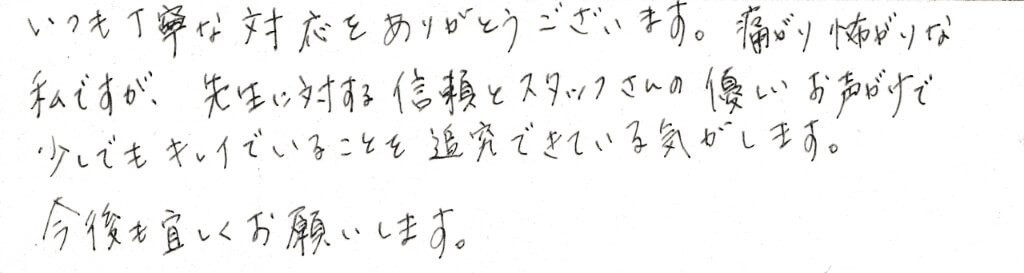 いつも丁寧な対応をありがとうございます。痛がり怖がりな
私ですが、先生に対する信頼とスタッフさんの優しいお声がけで
少しでもキレイでいることを追究できている気がします。
今後も宜しくお願いします。